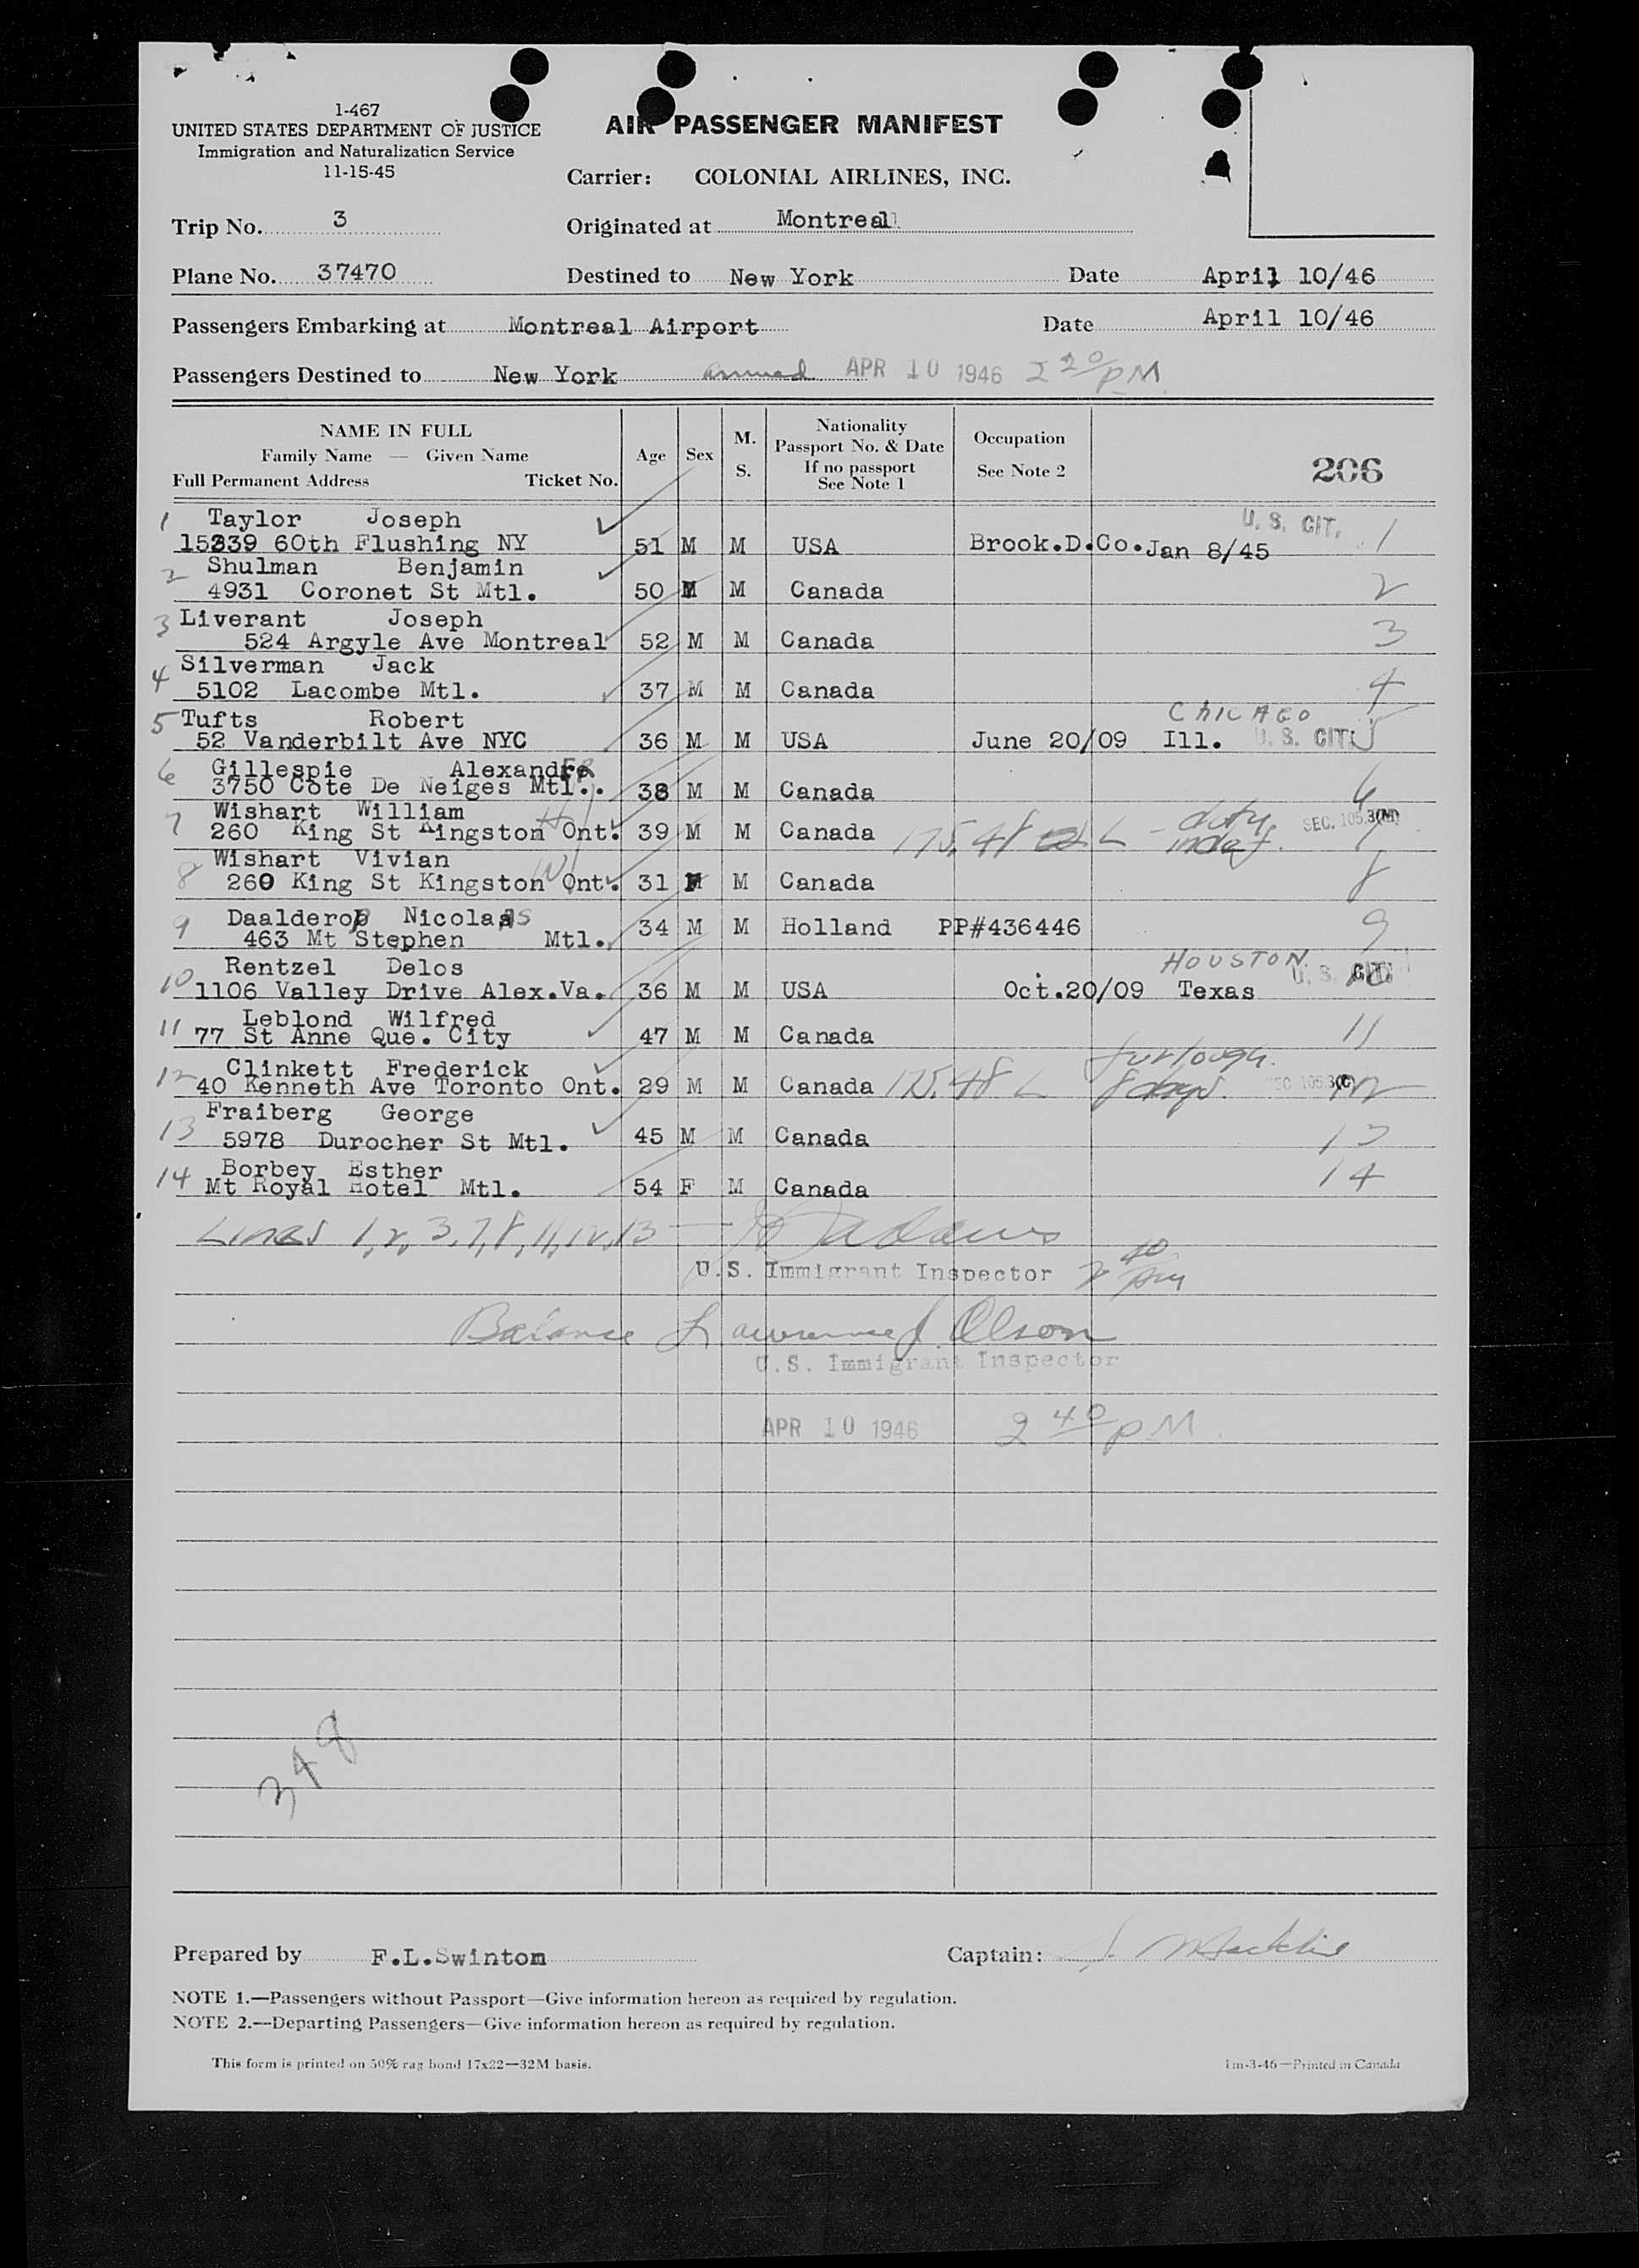 1-467
UNITED STATES DEPARTMENT OF JUSTICE
Immigration and Naturalization Service
11-15-45
AIR PASSENGER MANIFEST
Carrier: COLONIAL AIRLINES, INC.
Trip No. 3 Originated at Montreal
Plane No. 37470 Destined to New York Date April 10/46
Passengers Embarking at Montreal Airport Date April 10/46
Passengers Destined to New York arrived APR 10 1946 2 20 PM
NAME IN FULL
Family Name — Given Name
Full Permanent Address Ticket No.
Age Sex M. S.
Nationality
Passport No. & Date
If no passport
See Note 1
Occupation
See Note 2
206
1 Taylor Joseph U. S. CIT. 1
15239 60th Flushing NY 51 M M USA Brook.D.Co. Jan 8/45
2 Shulman Benjamin
4931 Coronet St Mtl. 50 M M Canada 2
3 Liverant Joseph
524 Argyle Ave Montreal 52 M M Canada 3
4 Silverman Jack
5102 Lacombe Mtl. 37 M M Canada 4
5 Tufts Robert CHICAGO 5
52 Vanderbilt Ave NYC 36 M M USA June 20/09 Ill. U. S. CIT.
6 Gillespie Alexander
3750 Cote De Neiges Mtl.. 38 M M Canada 6
7 Wishart William H
260 King St Kingston Ont. 39 M M Canada 175.48 L - duty indef. SEC. 105.3(M) 7
8 Wishart Vivian W
260 King St Kingston Ont. 31 F M Canada 8
9 Daalderop Nicolaas
463 Mt Stephen Mtl. 34 M M Holland PP#436446 9
10 Rentzel Delos HOUSTON U. S. CIT. 10
1106 Valley Drive Alex.Va. 36 M M USA Oct.20/09 Texas
11 Leblond Wilfred
77 St Anne Que. City 47 M M Canada 11
12 Clinkett Frederick furlough.
40 Kenneth Ave Toronto Ont. 29 M M Canada 175.48 L 8 days. SEC 105.3(C) 12
13 Fraiberg George
5978 Durocher St Mtl. 45 M M Canada 13
14 Borbey Esther
Mt Royal Hotel Mtl. 54 F M Canada 14
Lines 1, 2, 3, 7, 8, 11, 12, 13 — Adams
U.S. Immigrant Inspector 2 40 pm
Balance Lawrence J. Olson
U.S. Immigrant Inspector
APR 10 1946 2 40 PM.
348
Prepared by F.L.Swinton Captain:
NOTE 1.—Passengers without Passport—Give information hereon as required by regulation.
NOTE 2.—Departing Passengers—Give information hereon as required by regulation.
This form is printed on 50% rag bond 17x22—32M basis. 1m-3-46—Printed in Canada